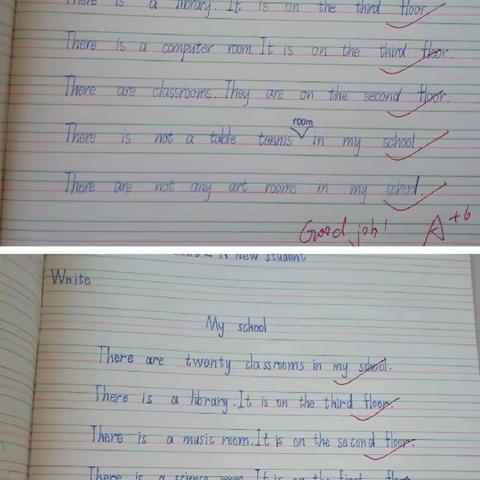 There is a library. It is on the third floor.
There is a computer room. It is on the third floor.
There are classrooms. They are on the second floor.
room
There is not a table tennis in my school.
There are not any art rooms in my school.
Good job! A+6
A new student
Write
My school
There are twenty classrooms in my school.
There is a library. It is on the third floor.
There is a music room. It is on the second floor.
There is a science room. It is on the first floor